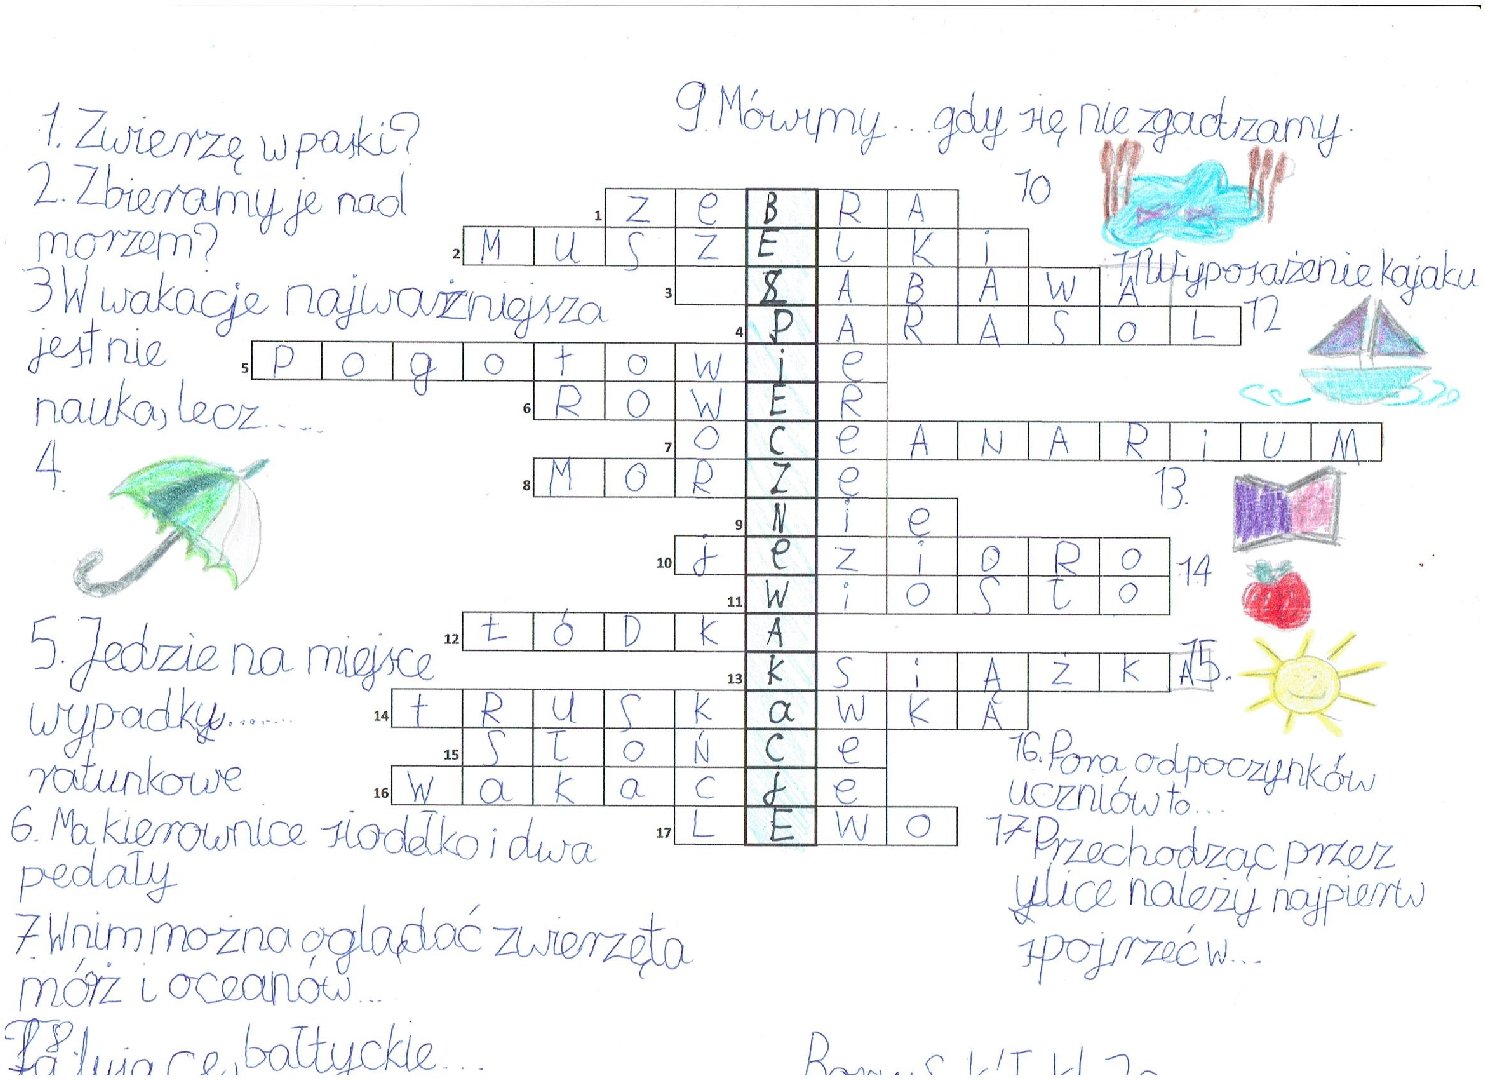 1. Zwierzę w paski?
2. Zbieramy je nad
morzem?
3 W wakacje najważniejsza
jest nie
nauka, lecz.....
4.
5. Jedzie na miejsce
wypadky.......
ratunkowe
6. Ma kierownice siodełko i dwa
pedały
7. W nim można oglądać zwierzęta
mórz i oceanów...
8
bałtyckie...
9. Mówimy... gdy się nie zgadzamy.
10
11 Wyposażenie kajaku
12
13.
14
15.
16. Pora odpoczynków
uczniów to...
17 Przechodząc przez
ylice należy najpierw
spojrzeć w...
1 Z e B R A
2 M U S Z E l K i
3 Z A B A W A
4 P A R A S O L
5 P o g o t o W i e
6 R O W E R
7 o C e A N A R i U M
8 M O R Z e
9 N i e
10 j e z i O R O
11 W i O S Ł O
12 Ł Ó D K A
13 K S i Ą Ż K A
14 t R U S K a W K A
15 S Ł o Ń C e
16 W a k a c j e
17 L E W O